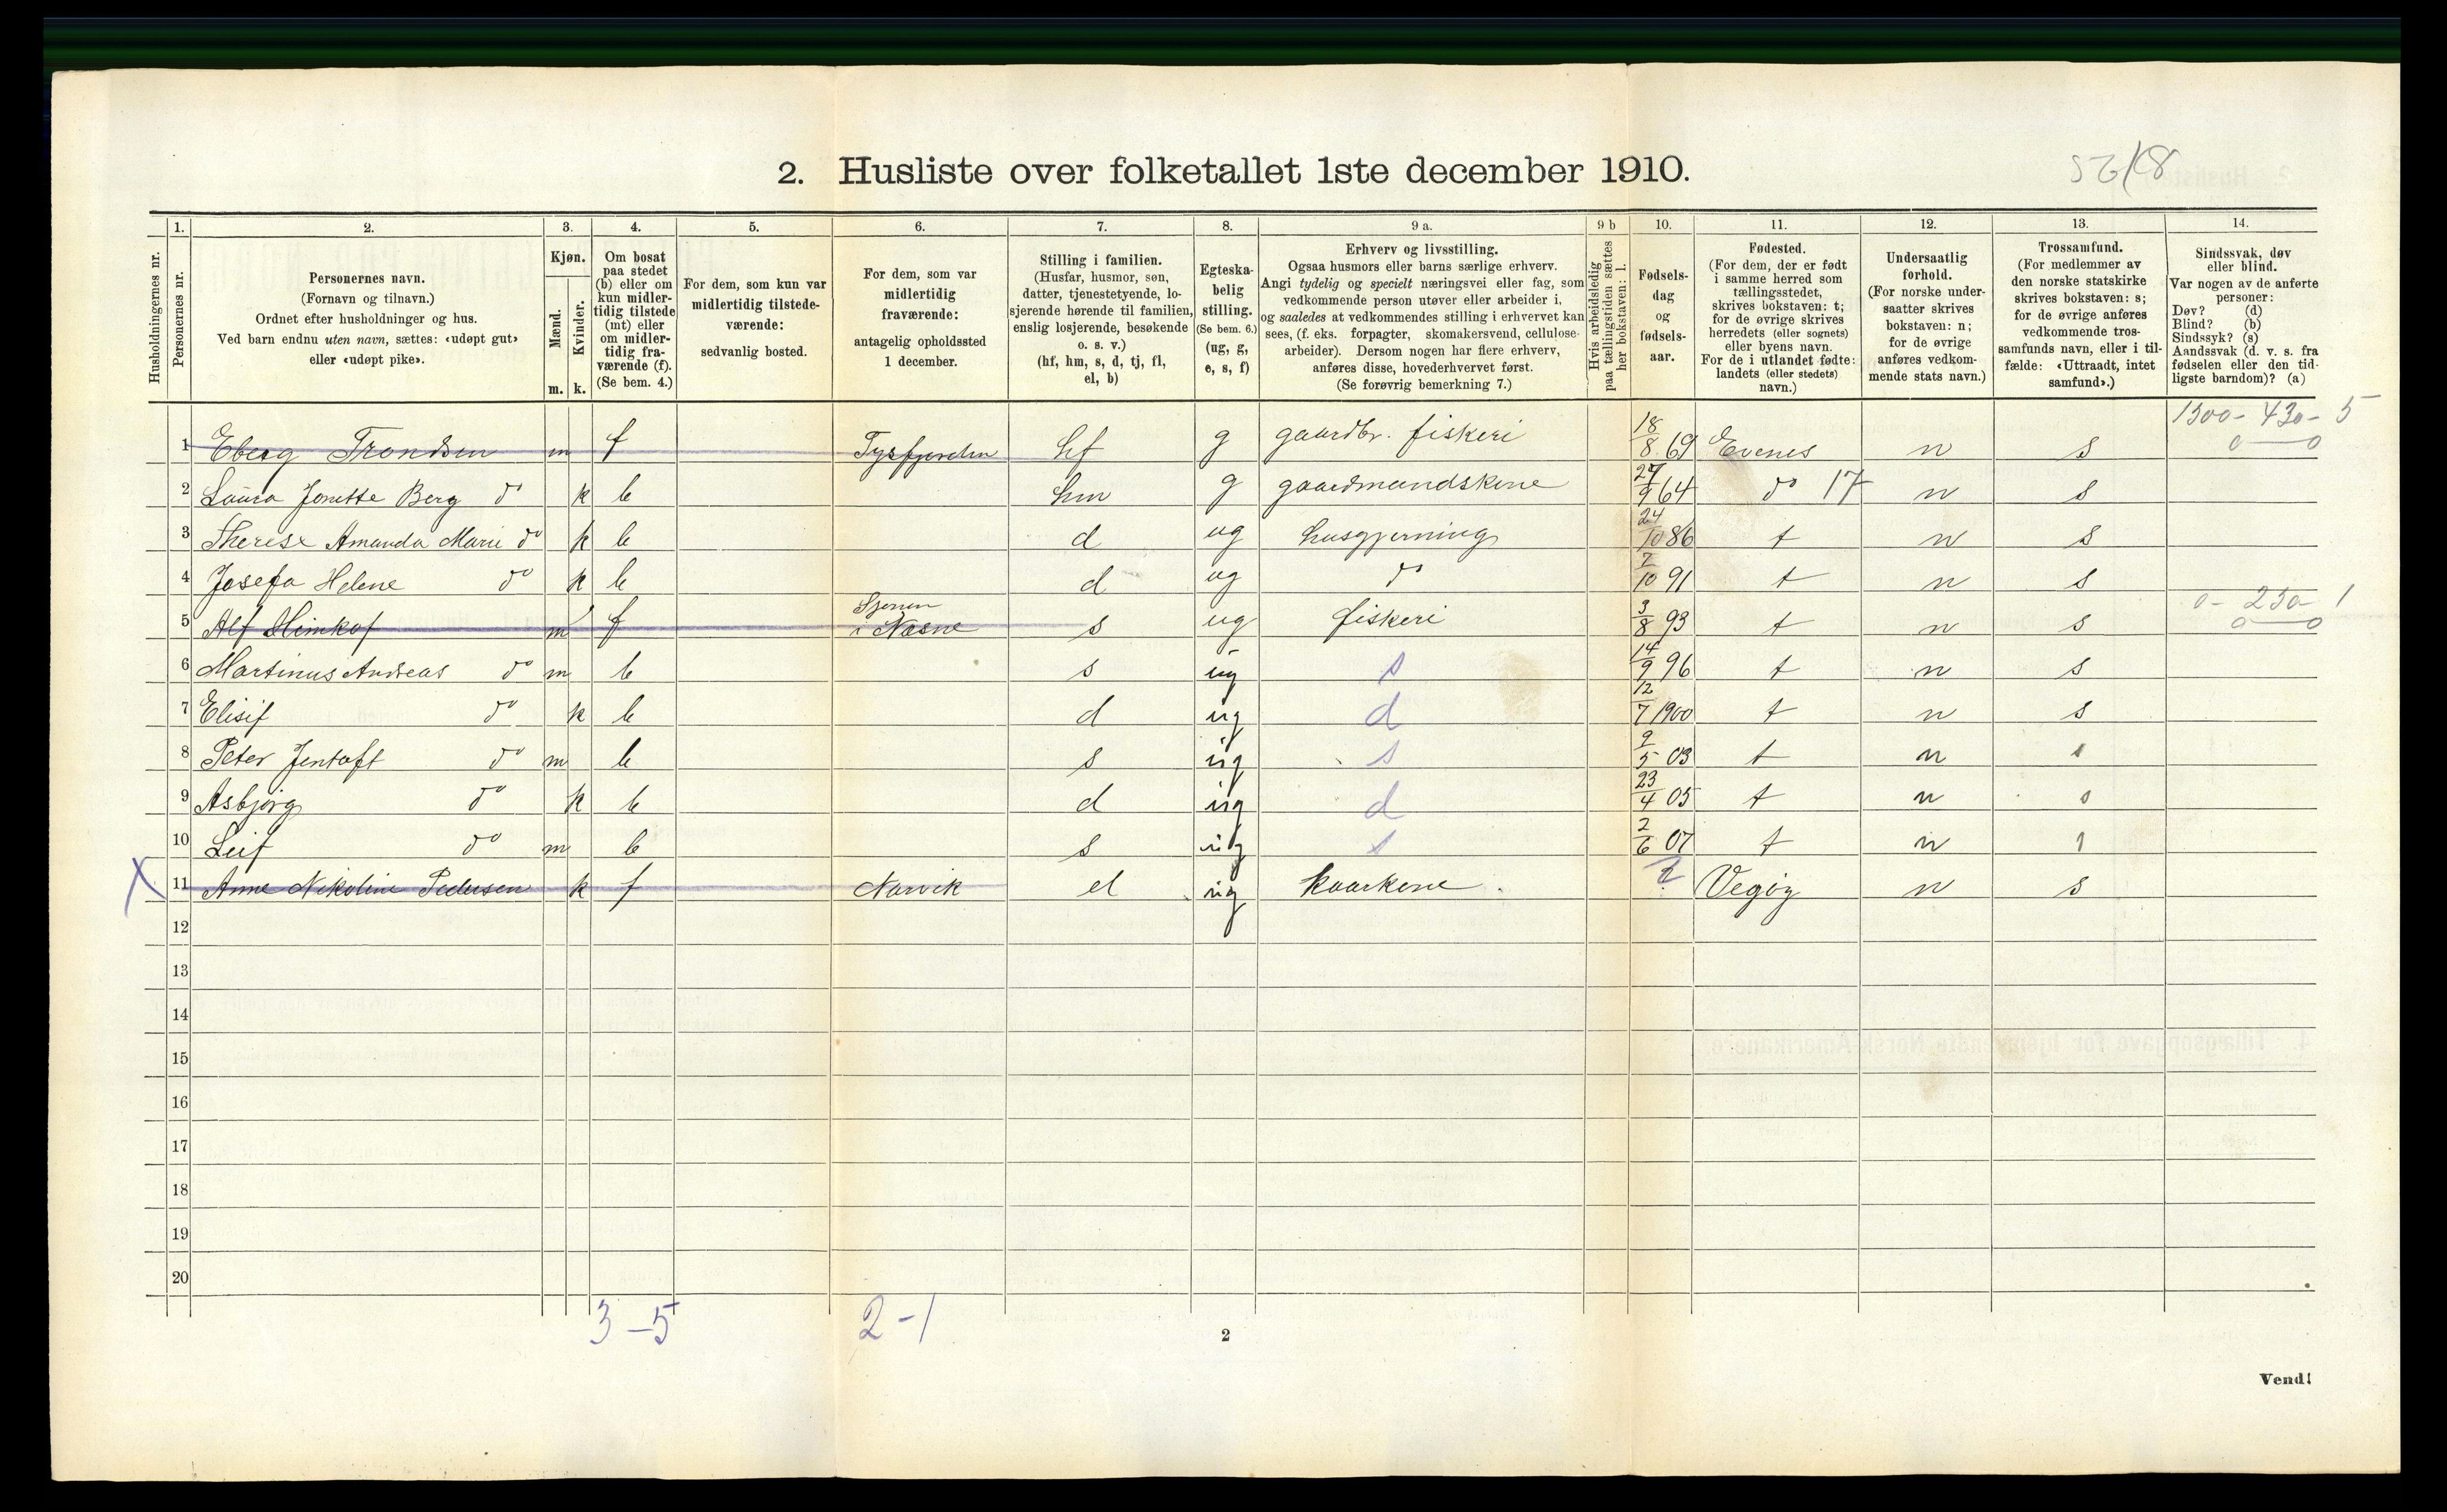 2. Husliste over folketallet 1ste december 1910.
1. 2. 3. 4. 5. 6. 7. 8. 9 a. 9 b 10. 11. 12. 13. 14.
Husholdningernes nr.
Personernes nr.
Personernes navn.
(Fornavn og tilnavn.)
Ordnet efter husholdninger og hus.
Ved barn endnu uten navn, sættes: «udøpt gut»
eller «udøpt pike».
Kjøn.
Mænd.
Kvinder.
m. k.
Om bosat
paa stedet
(b) eller om
kun midler-
tidig tilstede
(mt) eller
om midler-
tidig fra-
værende (f).
(Se bem. 4.)
For dem, som kun var
midlertidig tilstede-
værende:
sedvanlig bosted.
For dem, som var
midlertidig
fraværende:
antagelig opholdssted
1 december.
Stilling i familien.
(Husfar, husmor, søn,
datter, tjenestetyende, lo-
sjerende hørende til familien,
enslig losjerende, besøkende
o. s. v.)
(hf, hm, s, d, tj, fl,
el, b)
Egteska-
belig
stilling.
(Se bem. 6.)
(ug, g,
e, s, f)
Erhverv og livsstilling.
Ogsaa husmors eller barns særlige erhverv.
Angi tydelig og specielt næringsvei eller fag, som
vedkommende person utøver eller arbeider i,
og saaledes at vedkommendes stilling i erhvervet kan
sees, (f. eks. forpagter, skomakersvend, cellulose-
arbeider). Dersom nogen har flere erhverv,
anføres disse, hovederhvervet først.
(Se forøvrig bemerkning 7.)
Hvis arbeidsledig
paa tællingstiden sættes
her bokstaven: l.
Fødsels-
dag
og
fødsels-
aar.
Fødested.
(For dem, der er født
i samme herred som
tællingsstedet,
skrives bokstaven: t;
for de øvrige skrives
herredets (eller sognets)
eller byens navn.
For de i utlandet fødte:
landets (eller stedets)
navn.)
Undersaatlig
forhold.
(For norske under-
saatter skrives
bokstaven: n;
for de øvrige
anføres vedkom-
mende stats navn.)
Trossamfund.
(For medlemmer av
den norske statskirke
skrives bokstaven: s;
for de øvrige anføres
vedkommende tros-
samfunds navn, eller i til-
fælde: «Uttraadt, intet
samfund».)
Sindssvak, døv
eller blind.
Var nogen av de anførte
personer:
Døv? (d)
Blind? (b)
Sindssyk? (s)
Aandssvak (d. v. s. fra
fødselen eller den tid-
ligste barndom)? (a)
1300 - 430 - 5
1 Eberg Trondsen m f Tysfjorden hf g gaardbr. fiskeri 18/8 69 Evenes n s 0 — 0
2 Laura Jonette Berg do k b hm g gaardmandskone 27/9 64 do 17 n s
3 Therese Amanda Marie do k b d ug husgjerning 24/10 86 t n s
4 Josefa Helene do k b d ug do 7/10 91 t n s
0 - 230 - 1
5 Alf m f i Næsne s ug fiskeri 3/8 93 t n s 0 — 0
6 Martinus Andreas do m b s ug s 14/9 96 t n s
7 Elisif do k b d ug d 12/7 1900 t n s
8 Peter Jentoft do m b s ug s 9/5 03 t n s
9 Asbjørg do k b d ug d 23/4 05 t n s
10 Leif do m b s ug s 2/6 07 t n s
X 11 Anne Nikoline Pedersen k f Narvik el ug kaarkone. ? Vegøy n s
12
13
14
15
16
17
18
19
20
3 - 5 2 - 1
2
Vend!